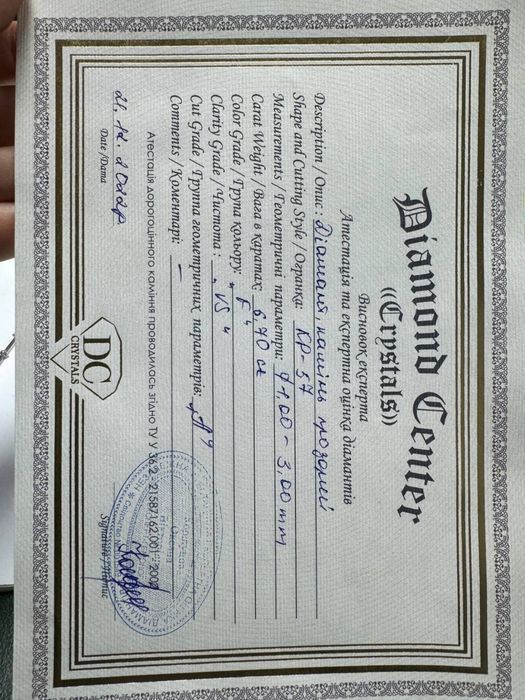 Diamond Center
((Crystals))
Висновок експерта
Атестація та експертна оцінка діамантів
Description / Опис : Діамант, камінь прозорий
Shape and Cutting Style / Огранка: КР-57
Measurements / Геометричні параметри: 1,00 - 3,00 mm
Carat Weight / Вага в каратах: 6.70 ct
Color Grade / Група кольору: "F"
Clarity Grade / Чистота : "VS"
Cut Grade / Группа геометричних параметрів: "А"
Comments / Коментарі: —
Атестація дорогоцінного каміння проводилась згідно ТУ У 36.2 - 21587162.001 - 2000
21.12.
Date /Дата
DC
CRYSTALS
Signature / Підпис